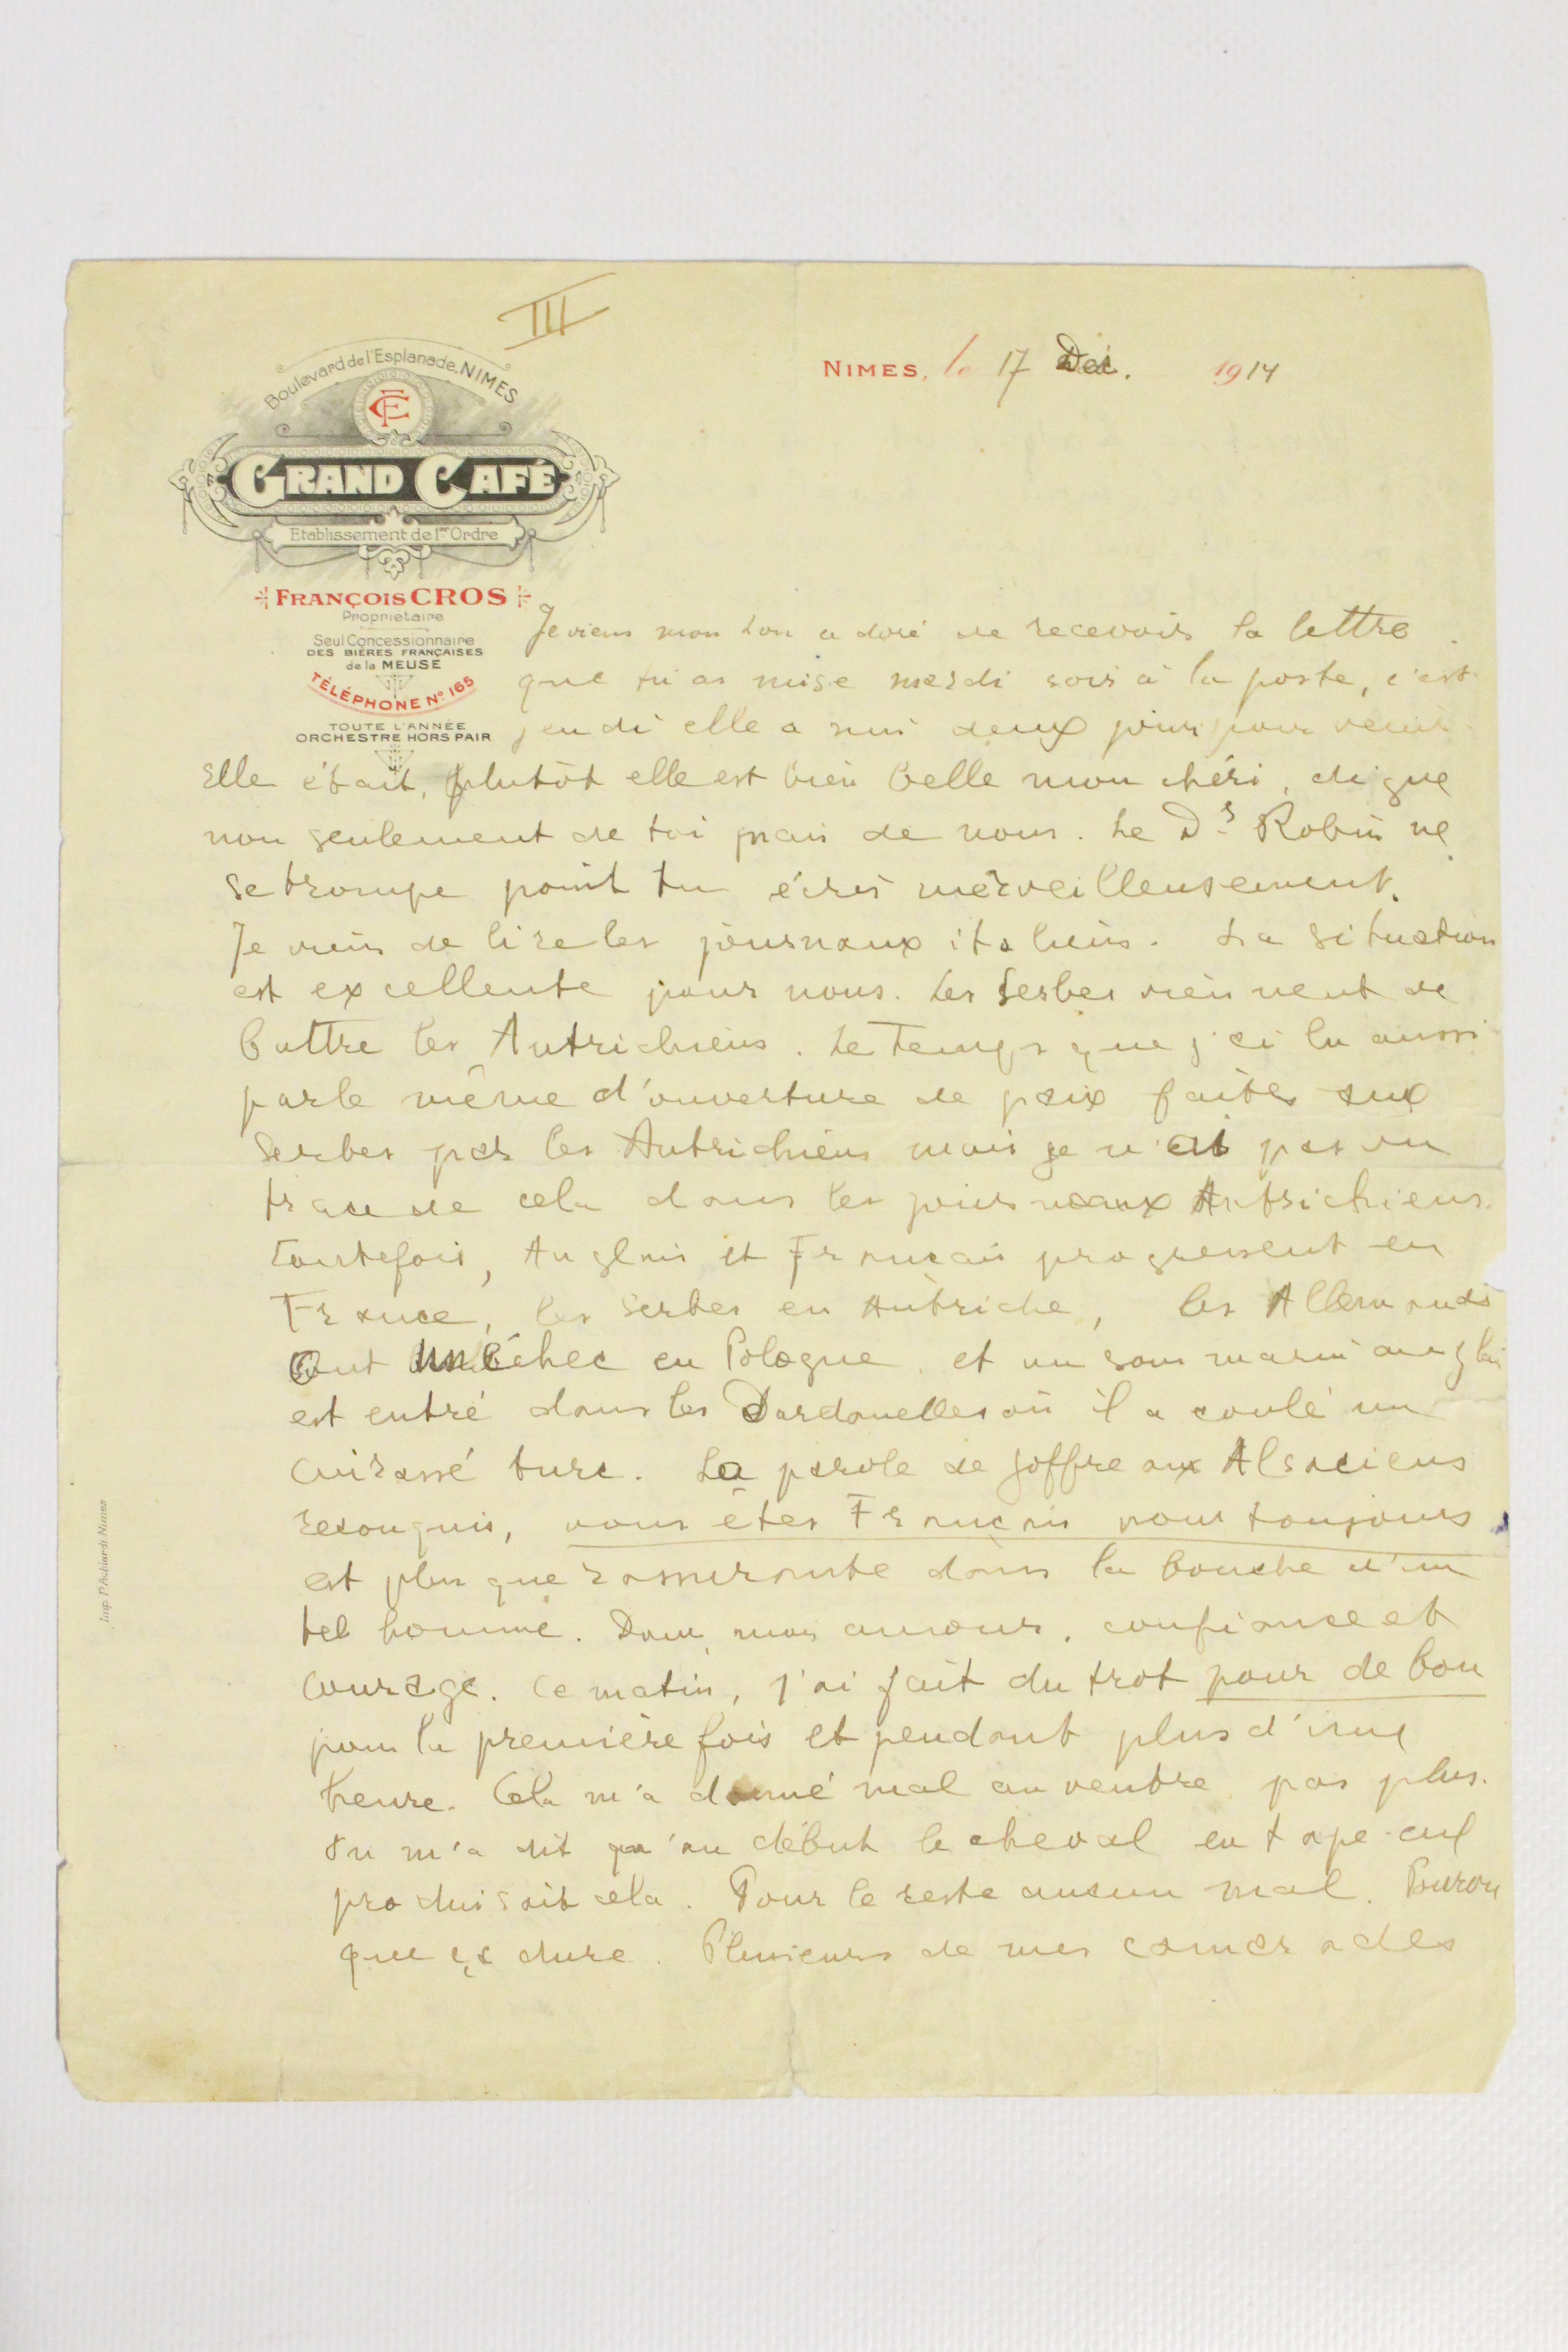 III
Boulevard de l'Esplanade, NIMES
FC
GRAND CAFÉ
Etablissement de 1er Ordre
FRANÇOIS CROS
Propriétaire
Seul Concessionnaire
DES BIÈRES FRANÇAISES
de la MEUSE
TÉLÉPHONE No 165
TOUTE L'ANNÉE
ORCHESTRE HORS PAIR
NIMES, le 17 Dec. 1914
Je viens mon Lou adoré de recevoir la lettre
que tu as mise mardi soir à la poste, c'est
jeudi elle a mis deux jours pour venir
Elle était, plutôt elle est bien belle mon chéri, digne
non seulement de toi mais de nous. Le Dr Robin ne
se trompe point tu écris merveilleusement.
Je viens de lire les journaux italiens. La situation
est excellente pour nous. Les Serbes viennent de
battre les Autrichiens. Le Temps que j'ai lu aussi
parle même d'ouverture de paix faites aux
Serbes par les Autrichiens mais je n'ai pas vu
trace de cela dans les journaux Autrichiens.
Toutefois, Anglais et Français progressent en
France, les Serbes en Autriche, les Allemands
ont un échec en Pologne et un sous marin anglais
est entré dans les Dardanelles où il a coulé un
cuirassé turc. La parole de Joffre aux Alsaciens
reconquis, vous êtes Français pour toujours
est plus que rassurante dans la bouche d'un
tel homme. Donc, mon amour, confiance et
courage. Ce matin, j'ai fait du trot pour de bon
pour la première fois et pendant plus d'une
heure. Cela m'a donné mal au ventre pas plus.
On m'a dit qu'au début le cheval en tape-cul
produisait cela. Pour le reste aucun mal. Pourvu
que ça dure. Plusieurs de mes camarades